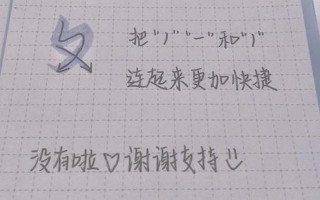 攵 把"丿""一"和"丿"
连起来更加快捷
没有啦♡谢谢支持